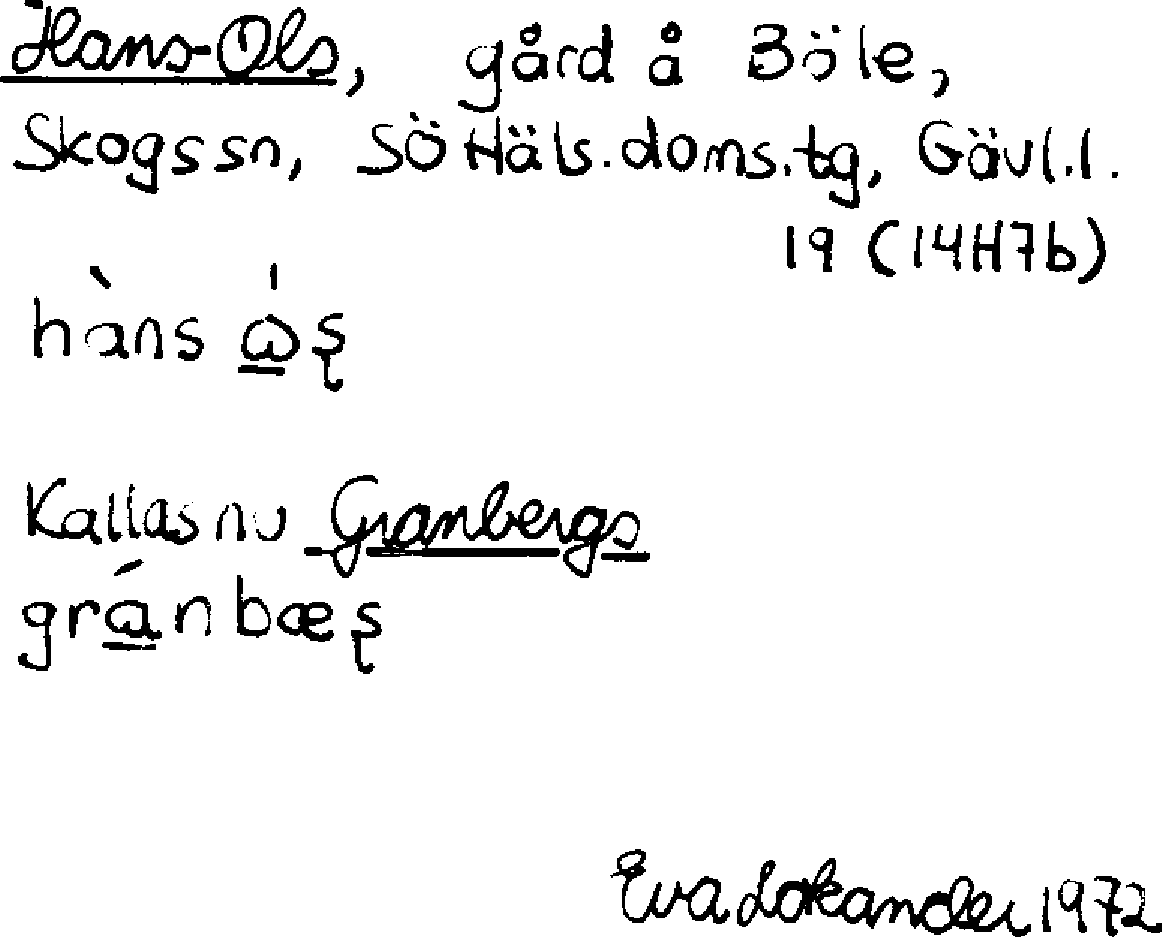 Hans-Ols, gård å Böle,
Skogs sn, SöHäls.doms.tg, Gävl.l.
19 (14H7b)
hàns ώ̲ʂ
Kallas nu Granbergs
grá̲nbæʂ
Eva Lokander 1972